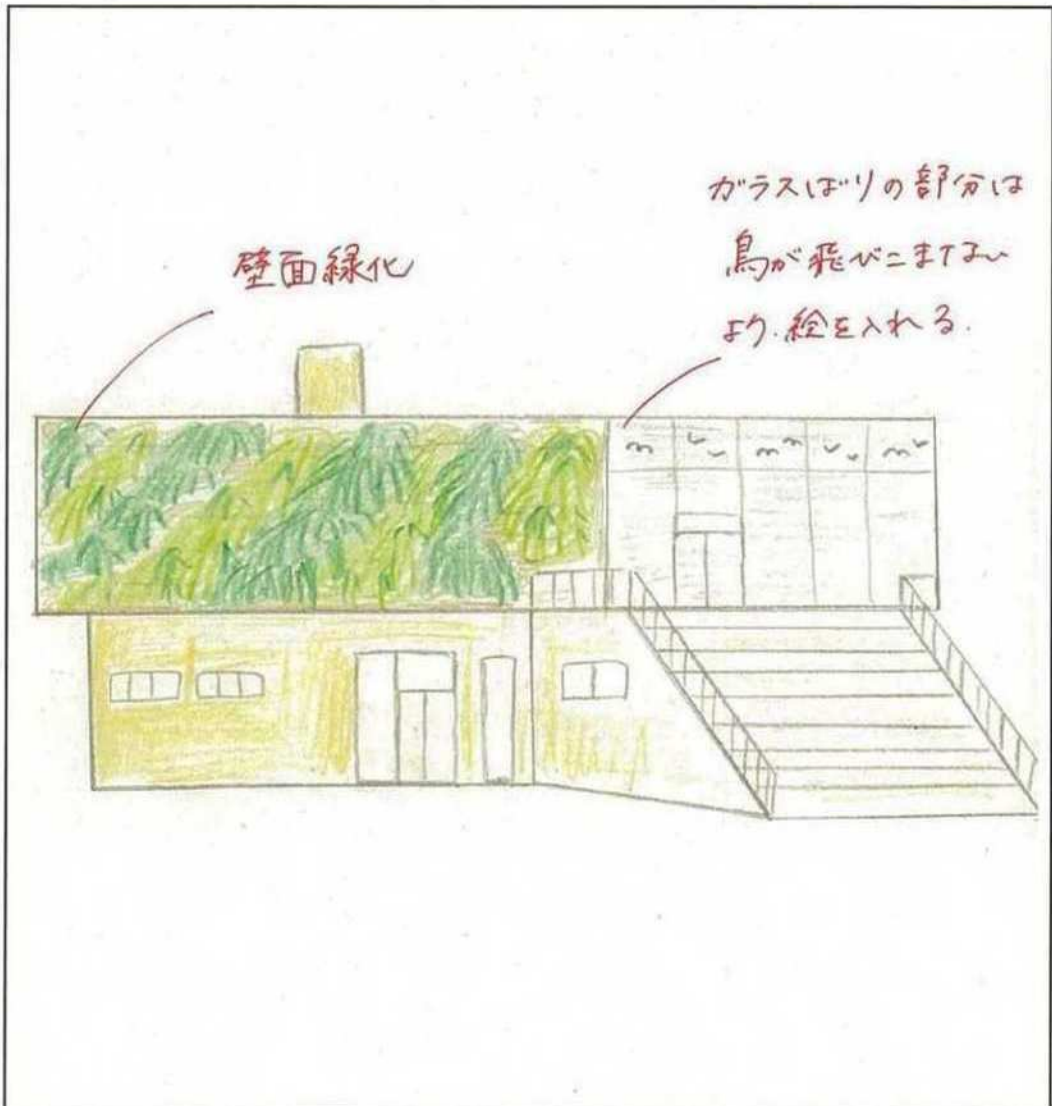 壁面緑化
ガラスばりの部分は
鳥が飛びこまない
よう.絵を入れる.